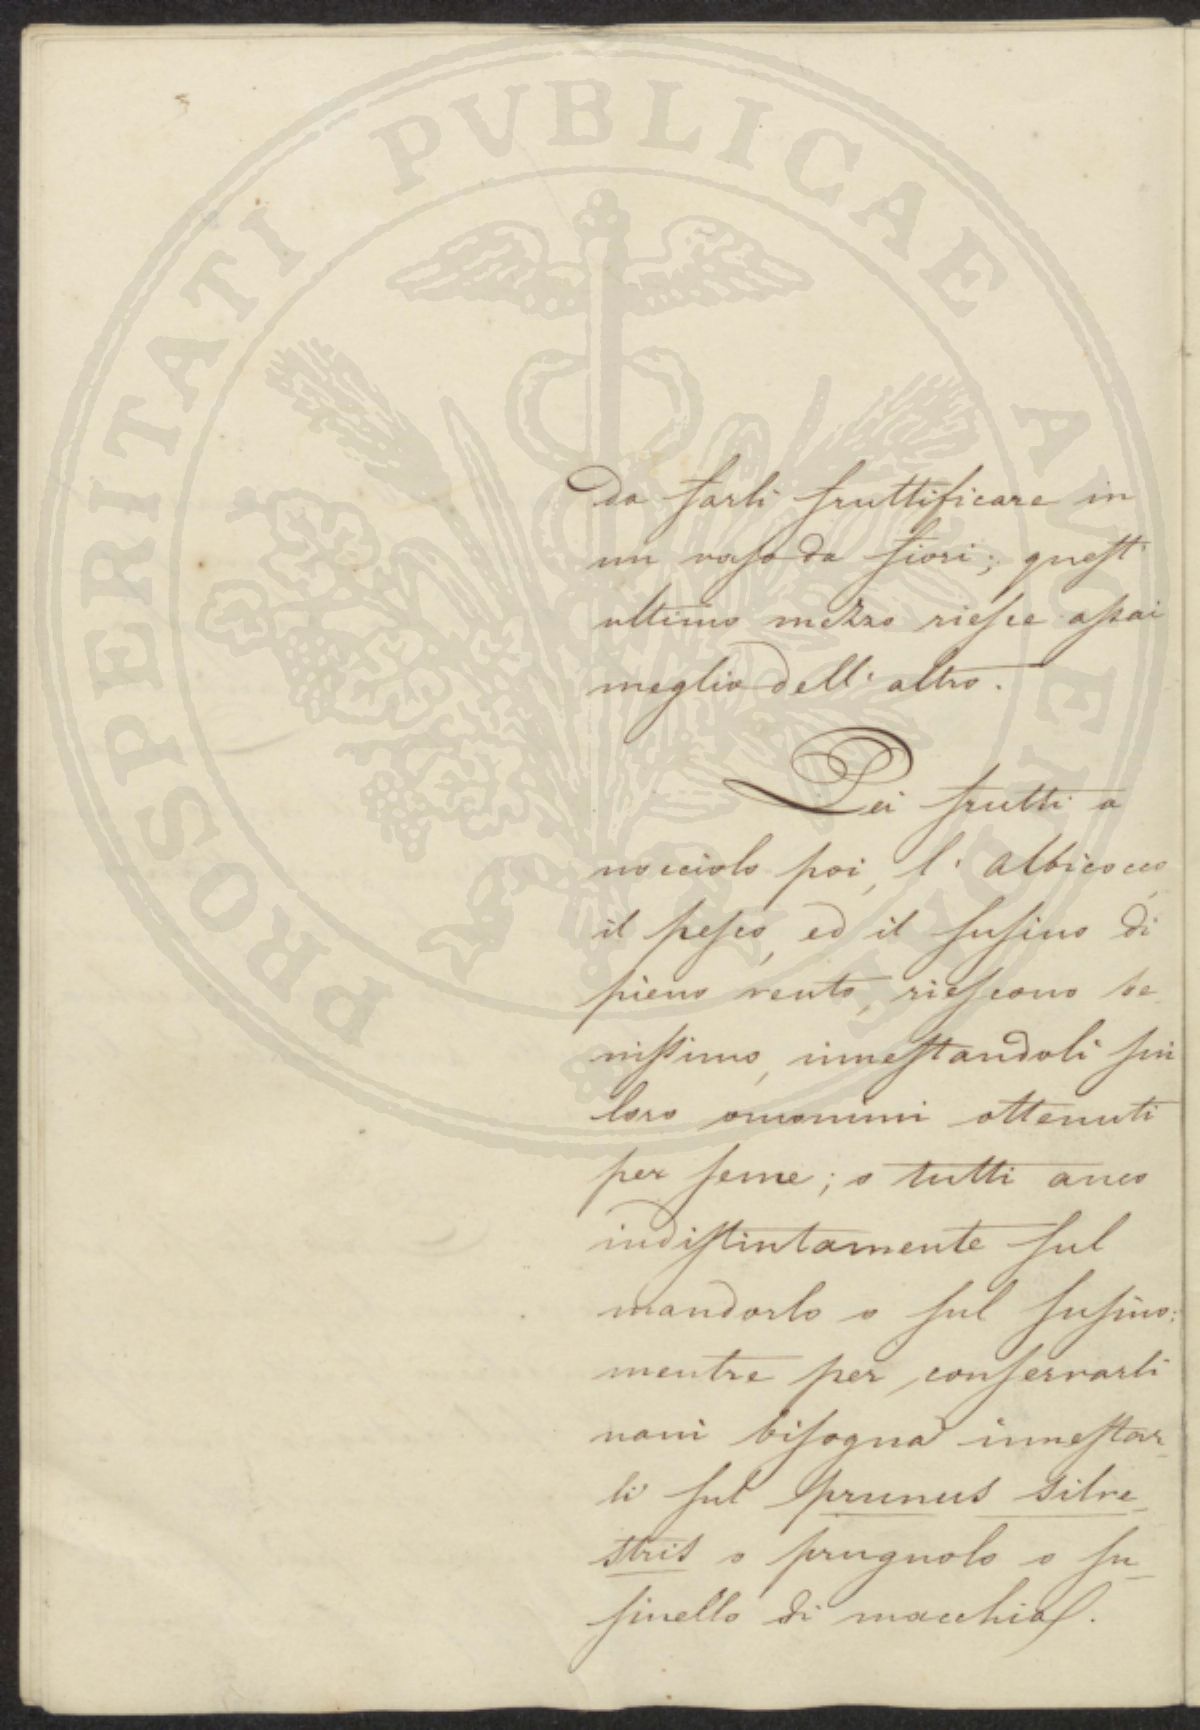 PROSPERITATI PUBLICAE AUGENDAE
da farli fruttificare in
un vaso da fiori; quest'
ultimo mezzo riesce assai
meglio dell'altro.
Dei frutti a
nocciolo poi, l'albicocco,
il pesco, ed il susino di
pieno vento, riescono be-
nissimo, innestandoli sui
loro omonimi ottenuti
per seme; o tutti anco
indistintamente sul
mandorlo o sul susino:
mentre per conservarli
nani bisogna innestar-
li sul prunus silve-
stris o prugnolo o su-
sinello di macchia.